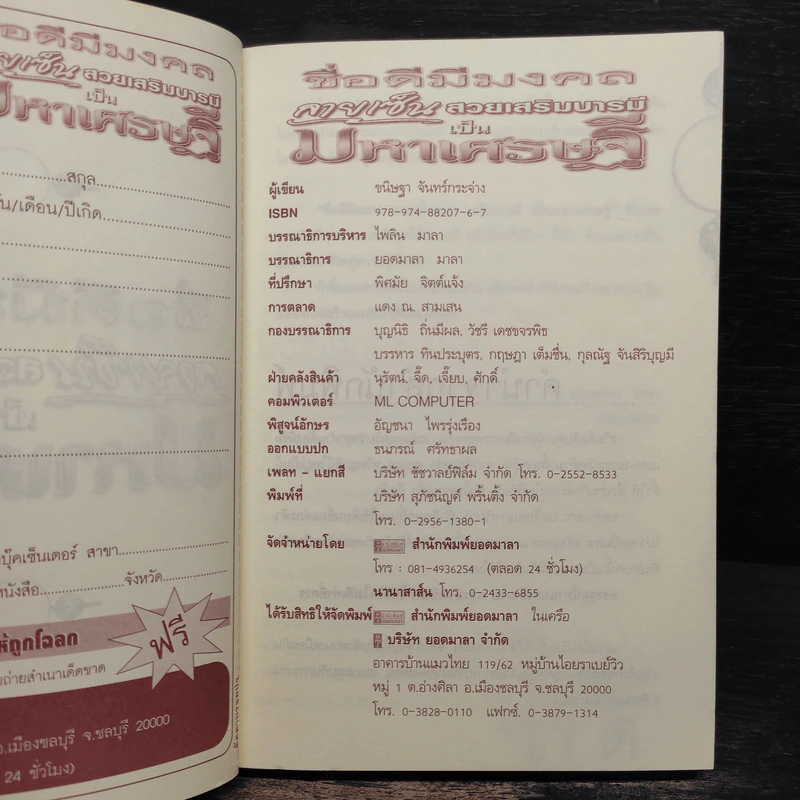 ชื่อดีมีมงคล
ลายเซ็น สวยเสริมบารมี
เป็น
มหาเศรษฐี
สกุล
วัน/เดือน/ปีเกิด
บุ๊คเซ็นเตอร์ สาขา
หนังสือ จังหวัด
ให้ถูกโฉลก
ฟรี
ถ่ายสำเนาเด็ดขาด
อ.เมืองชลบุรี จ.ชลบุรี 20000
24 ชั่วโมง)
ชื่อดีมีมงคล
ลายเซ็น สวยเสริมบารมี
เป็น
มหาเศรษฐี
ผู้เขียน ขนิษฐา จันทร์กระจ่าง
ISBN 978-974-88207-6-7
บรรณาธิการบริหาร ไพลิน มาลา
บรรณาธิการ ยอดมาลา มาลา
ที่ปรึกษา พิศมัย จิตต์แจ้ง
การตลาด แดง ณ. สามเสน
กองบรรณาธิการ บุญนิธิ ถิ่นมีผล, วัชรี เดชขจรพิธ
บรรหาร ทินประบุตร, กฤษฎา เต็มชื่น, กุลณัฐ จันสิริบุญมี
ฝ่ายคลังสินค้า นุรัตน์, จี๊ด, เจี๊ยบ, ศักดิ์
คอมพิวเตอร์ ML COMPUTER
พิสูจน์อักษร อัญชนา ไพรรุ่งเรือง
ออกแบบปก ธนภรณ์ ศรัทธาผล
เพลท - แยกสี บริษัท ชัชวาลย์ฟิล์ม จำกัด โทร. 0-2552-8533
พิมพ์ที่ บริษัท สุภัชนิญค์ พริ้นติ้ง จำกัด
โทร. 0-2956-1380-1
จัดจำหน่ายโดย สำนักพิมพ์ยอดมาลา
โทร : 081-4936254 (ตลอด 24 ชั่วโมง)
นานาสาส์น โทร. 0-2433-6855
ได้รับสิทธิให้จัดพิมพ์ สำนักพิมพ์ยอดมาลา ในเครือ
บริษัท ยอดมาลา จำกัด
อาคารบ้านแมวไทย 119/62 หมู่บ้านไอยราเบย์วิว
หมู่ 1 ต.อ่างศิลา อ.เมืองชลบุรี จ.ชลบุรี 20000
โทร. 0-3828-0110 แฟกซ์. 0-3879-1314